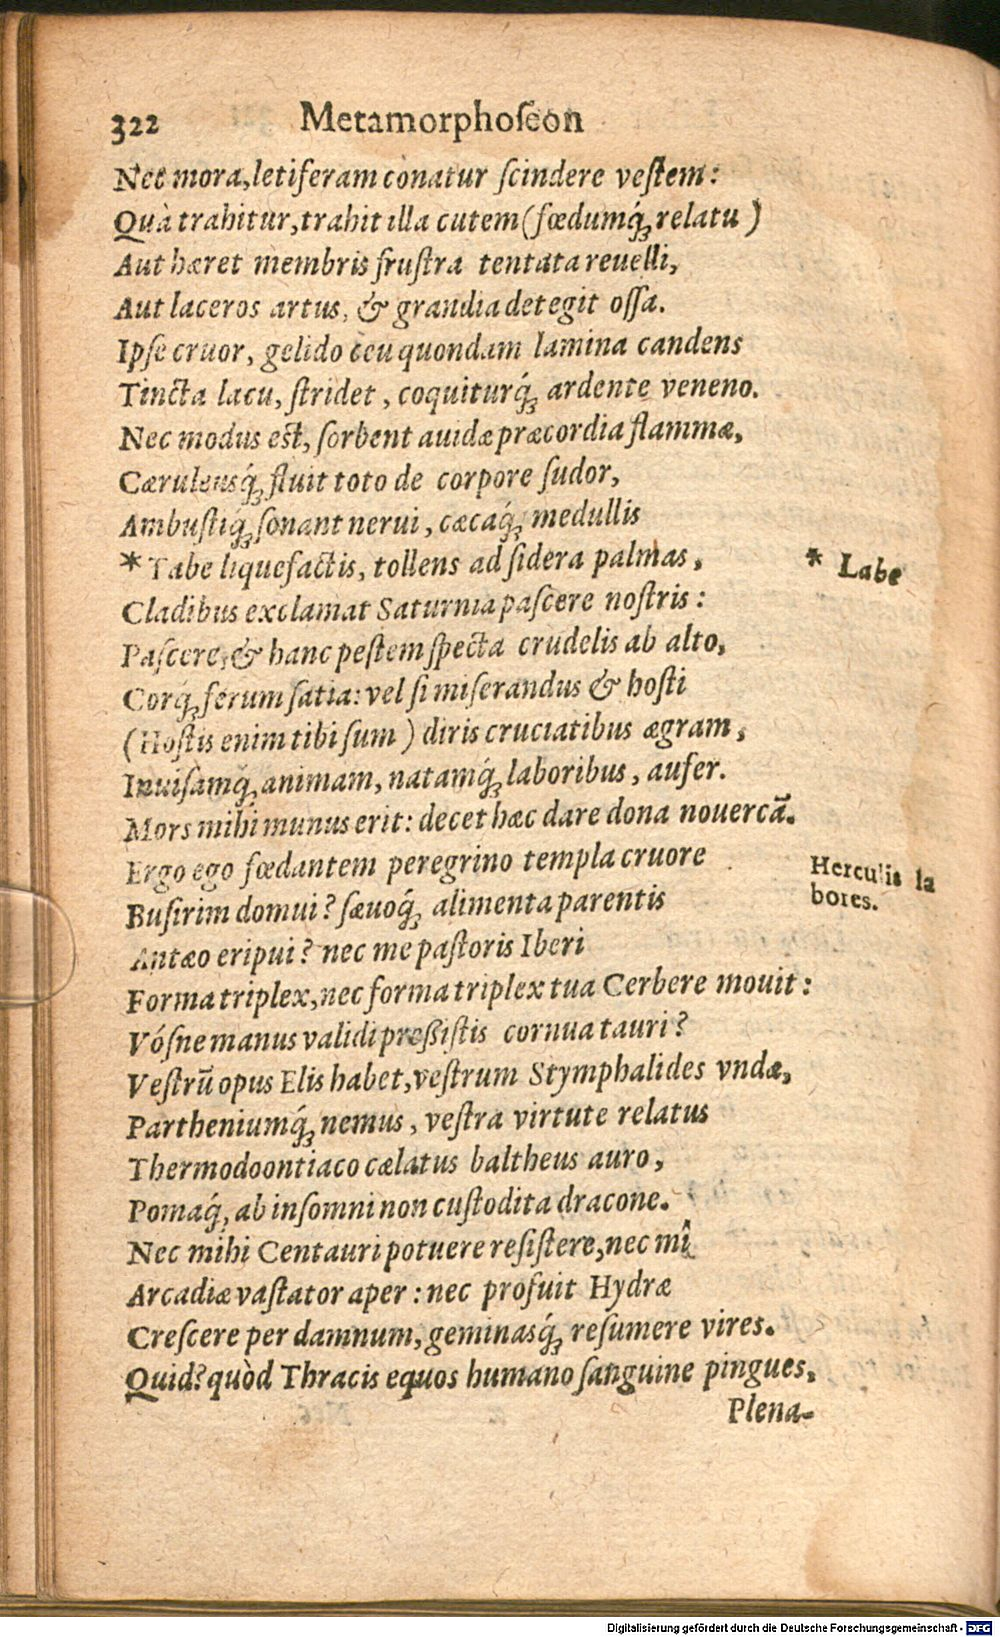 322 Metamorphoſeon
Nec mora, letiferam conatur ſcindere veſtem:
Quà trahitur, trahit illa cutem (fœdumq́; relatu)
Aut hæret membris fruſtra tentata reuelli,
Aut laceros artus, & grandia detegit oſſa.
Ipſe cruor, gelido ceu quondam lamina candens
Tincta lacu, ſtridet, coquiturq́; ardente veneno.
Nec modus est, ſorbent auidæ præcordia flammæ,
Cæruleusq́; fluit toto de corpore ſudor,
Ambuſtiq́; ſonant nerui, cæcaq́; medullis
* Tabe liquefactis, tollens ad ſidera palmas,
* Labe
Cladibus exclamat Saturnia paſcere noſtris:
Paſcere, & hanc peſtem ſpecta crudelis ab alto,
Corq́; ferum ſatia: vel ſi miſerandus & hoſti
(Hoſtis enim tibi ſum) diris cruciatibus ægram,
Inuiſamq́; animam, natamq́; laboribus, aufer.
Mors mihi munus erit: decet hæc dare dona nouercã.
Ergo ego fœdantem peregrino templa cruore
Herculis la
bores.
Buſirim domui? ſæuoq́; alimenta parentis
Antæo eripui? nec me paſtoris Iberi
Forma triplex, nec forma triplex tua Cerbere mouit:
Vósne manus validi preßiſtis cornua tauri?
Veſtrũ opus Elis habet, veſtrum Stymphalides vndæ,
Partheniumq́; nemus, veſtra virtute relatus
Thermodoontiaco cælatus baltheus auro,
Pomaq́; ab inſomni non cuſtodita dracone.
Nec mihi Centauri potuere reſiſtere, nec mî
Arcadiæ vaſtator aper: nec profuit Hydræ
Creſcere per damnum, geminasq́; reſumere vires.
Quid? quòd Thracis equos humano ſanguine pingues,
Plena-
Digitalisierung gefördert durch die Deutsche Forschungsgemeinschaft - DFG